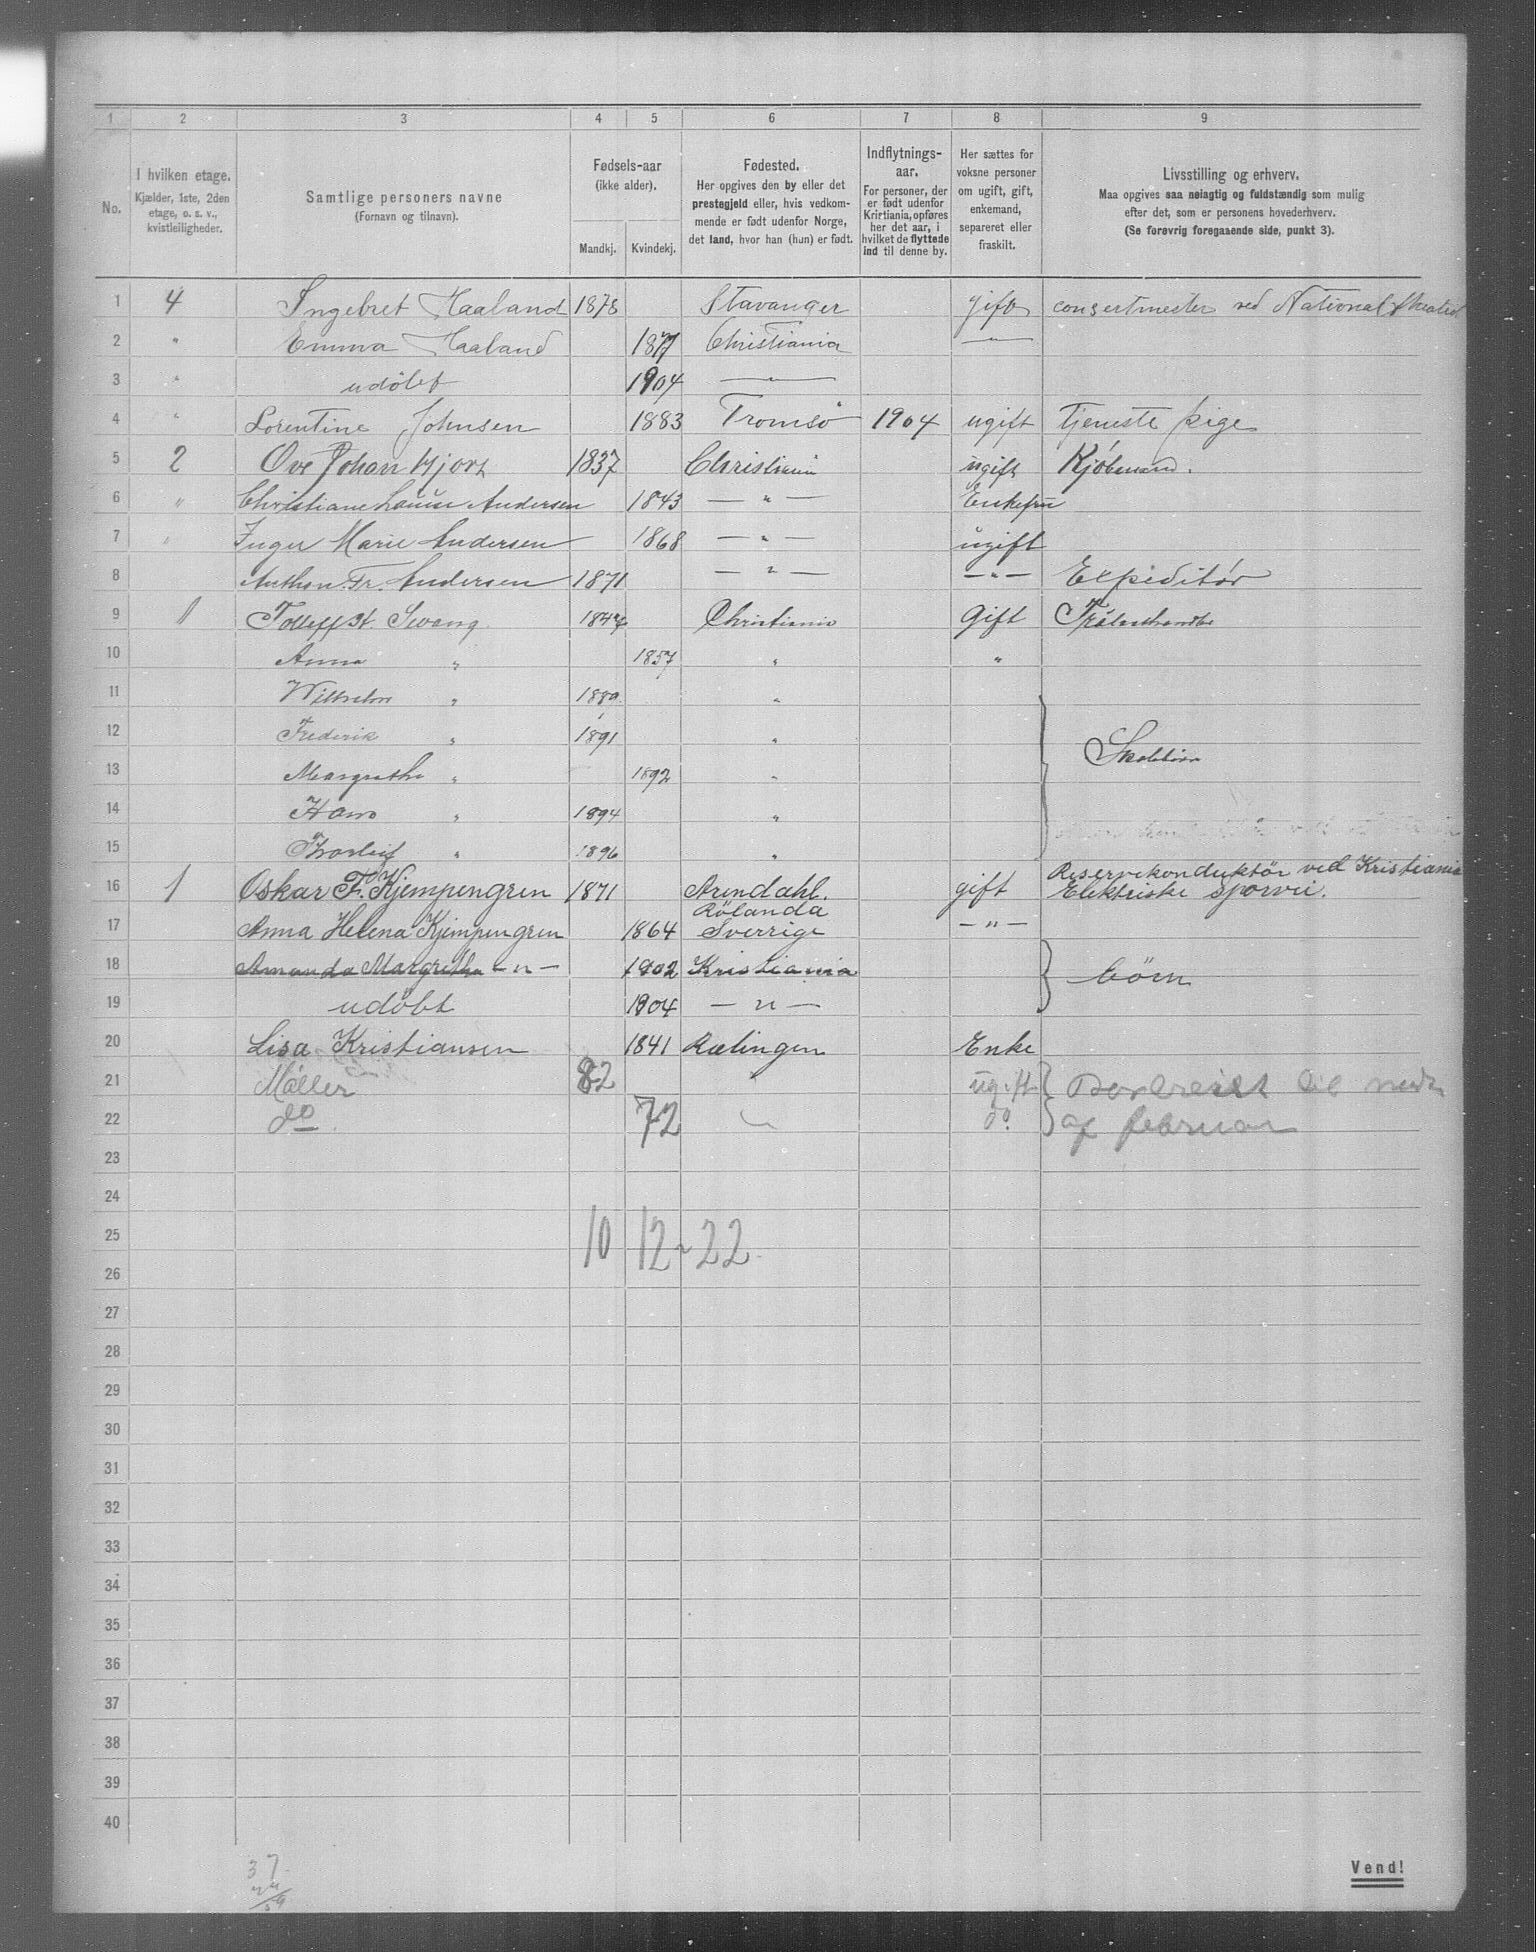 1 2 3 4 5 6 7 8 9
No.
I hvilken etage.
Kjælder, 1ste, 2den
etage, o. s. v.,
kvistleiligheder.
Samtlige personers navne
(Fornavn og tilnavn).
Fødsels-aar
(ikke alder).
Mandkj. Kvindekj.
Fødested.
Her opgives den by eller det
prestegjeld eller, hvis vedkom-
mende er født udenfor Norge,
det land, hvor han (hun) er født.
Indflytnings-
aar.
For personer, der
er født udenfor
Kristiania, opføres
her det aar, i
hvilket de flyttede
ind til denne by.
Her sættes for
voksne personer
om ugift, gift,
enkemand,
separeret eller
fraskilt.
Livsstilling og erhverv.
Maa opgives saa nøiagtig og fuldstændig som mulig
efter det, som er personens hovederhverv.
(Se forøvrig foregaaende side, punkt 3).
1 4 Ingebret Haaland 1878 Stavanger gift concertmester ved National theatret
2 " Emma Haaland 1877 Christiania — " —
3 " udølet 1904 — " —
4 " Lorentine Johnsen 1883 Tromsø 1904 ugift Tjeneste pige
5 2 Ove Johan Hjort 1837 Christiania ugift Kjøbmand.
6 " Christiane Louise Andersen 1843 — " — Enkefru
7 " Inger Marie Andersen 1868 — " — ugift
8 Anthon Fr. Andersen 1871 — " — — " — Expeditør
9 1 Tollef St. Svang 1847 Christiania Gift
10 Anna " 1857 " "
11 Wilhelm " 1889 "
12 Frederik " 1891 "
13 Margrethe " 1892 " Skolebørn
14 Hans " 1894 "
15 Thorleif " 1896 "
16 1 Oskar F. Kjempengren 1871 Arendahl. gift Reservekonduktør ved Kristiania
Elektriske sporvei.
17 Anna Helena Kjempengren 1864 Rölanda
Sverrige — " —
18 Amanda Margretha — " — 1902 Kristiania börn
19 udöbt 1904 — " —
20 Lisa Kristiansen 1841 Rælingen Enke
21 Møller 82 " ugift Bortreist til midten
22 do 72 " do. af februar
23
24
25 10 12 - 22
26
27
28
29
30
31
32
33
34
35
36
37
38
39
40
37
Vend!